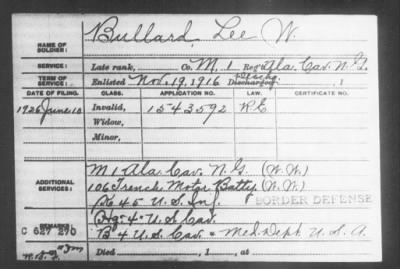 NAME OF SOLDIER: Bullard, Lee W.
SERVICE: Late rank, Co. M. 1 Reg't Ala. Cav. N. G.
TERM OF SERVICE: Enlisted Nov. 19, 1916 Discharged , 1
DATE OF FILING. CLASS. APPLICATION NO. LAW. CERTIFICATE NO.
1926 June 10 Invalid, 1543592 R E
Widow,
Minor,
ADDITIONAL SERVICES: M 1 Ala. Cav. N. G. (W. W.)
106 Trench Motor Batty (W. W.)
45 U. S. Inf. BORDER DEFENSE
Hq. 4 U. S. Cav.
REMARKS: B 4 U. S. Cav. Med. Dept. U. S. A.
C 627 270
Died , 1 , at